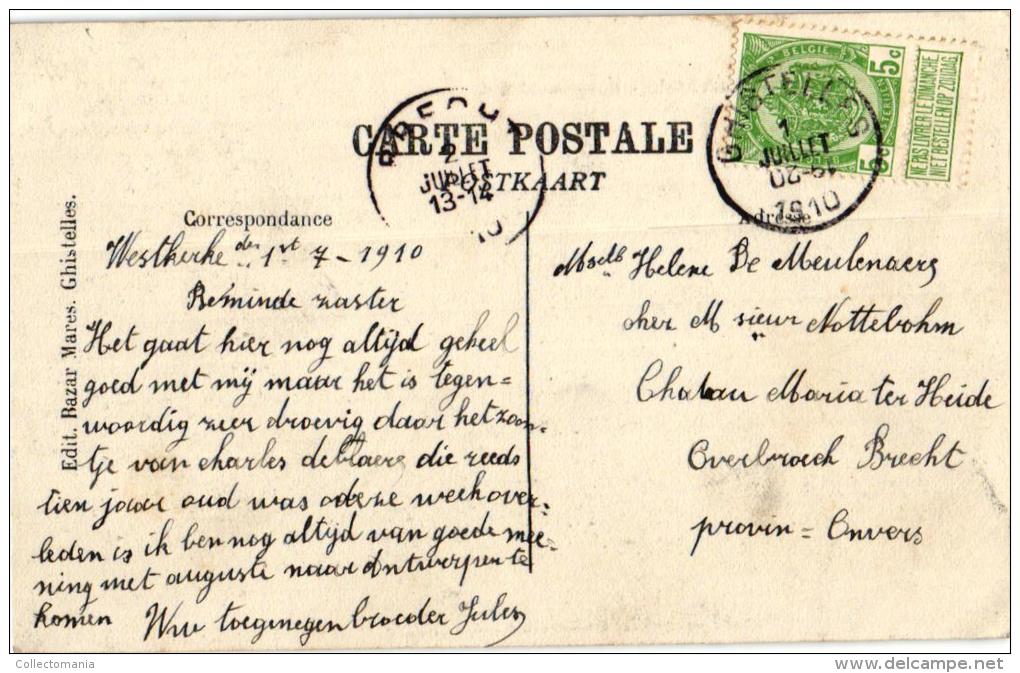 CARTE POSTALE
POSTKAART
Correspondance
Adresse
Edit. Bazar Mares. Ghistelles.
BELGIE
5c
5c
NE PAS LIVRER LE DIMANCHE
NIET BESTELLEN OP ZONDAG
GHISTELLES
1
JUILLET
1910
2
JUILLET
13-14
10
Westkerke den 1st 7 - 1910
Beminde zuster
Het gaat hier nog altijd geheel
goed met mij maar het is tegen=
woordig zeer droevig daar het zoon-
tje van charles deblaere die reeds
tien jaar oud was deze week over-
leden is ik ben nog altijd van goede mee-
ning met auguste naar Antwerpen te
komen Uw toegenegen broeder Jules
Mselle Helene De Meulenaere
cher M sieur Nottebohm
Chatau Maria ter Heide
Overbroeck Brecht
provin = Anvers
Collectomania
www.delcampe.net